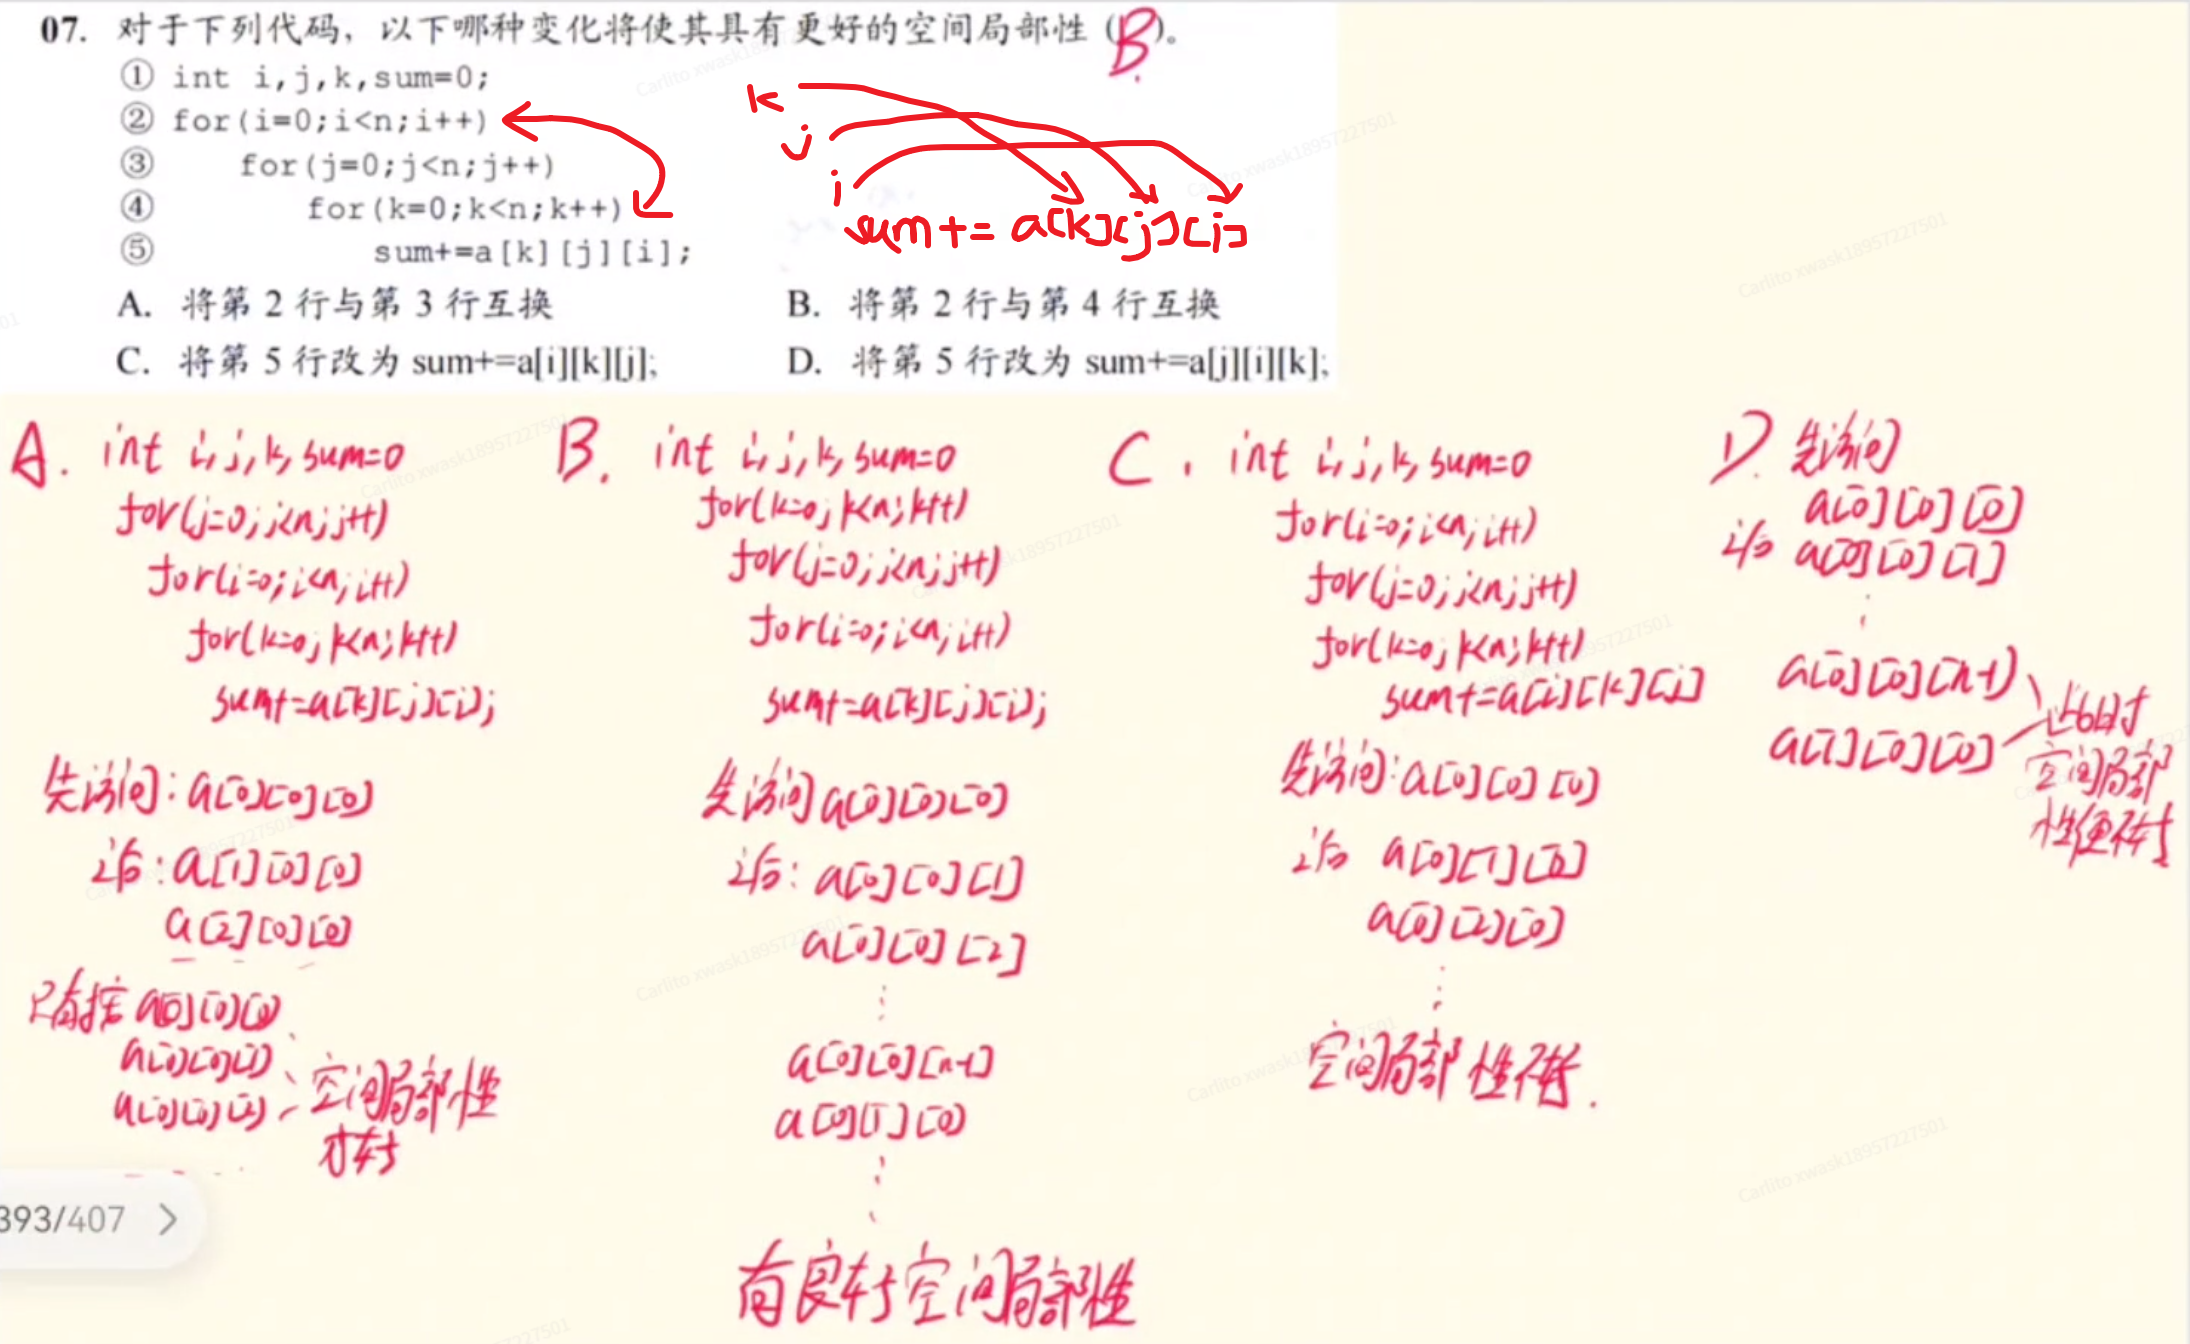 07. 对于下列代码，以下哪种变化将使其具有更好的空间局部性（B）。
① int i,j,k,sum=0;
② for(i=0;i<n;i++)
③ for(j=0;j<n;j++)
④ for(k=0;k<n;k++)
⑤ sum+=a[k][j][i];
k
j
i
sum+=a[k][j][i]
A. 将第 2 行与第 3 行互换
B. 将第 2 行与第 4 行互换
C. 将第 5 行改为 sum+=a[i][k][j];
D. 将第 5 行改为 sum+=a[j][i][k];
A. int i,j,k,sum=0
for(j=0;j<n;j++)
for(i=0;i<n;i++)
for(k=0;k<n;k++)
sum+=a[k][j][i];
先访问:a[0][0][0]
之后:a[1][0][0]
a[2][0][0]
只有按a[0][0][0]
a[0][0][1]
a[0][0][2]
空间局部性
才好
B. int i,j,k,sum=0
for(k=0;k<n;k++)
for(j=0;j<n;j++)
for(i=0;i<n;i++)
sum+=a[k][j][i];
先访问a[0][0][0]
之后:a[0][0][1]
a[0][0][2]
a[0][0][n-1]
a[0][1][0]
有良好空间局部性
C. int i,j,k,sum=0
for(i=0;i<n;i++)
for(j=0;j<n;j++)
for(k=0;k<n;k++)
sum+=a[i][k][j]
先访问:a[0][0][0]
之后 a[0][1][0]
a[0][2][0]
空间局部性不好.
D. 先访问
a[0][0][0]
之后 a[0][0][1]
a[0][0][n-1]
a[1][0][0]
此时
空间局部
性便不好
393/407
Carlito xwask18957227501